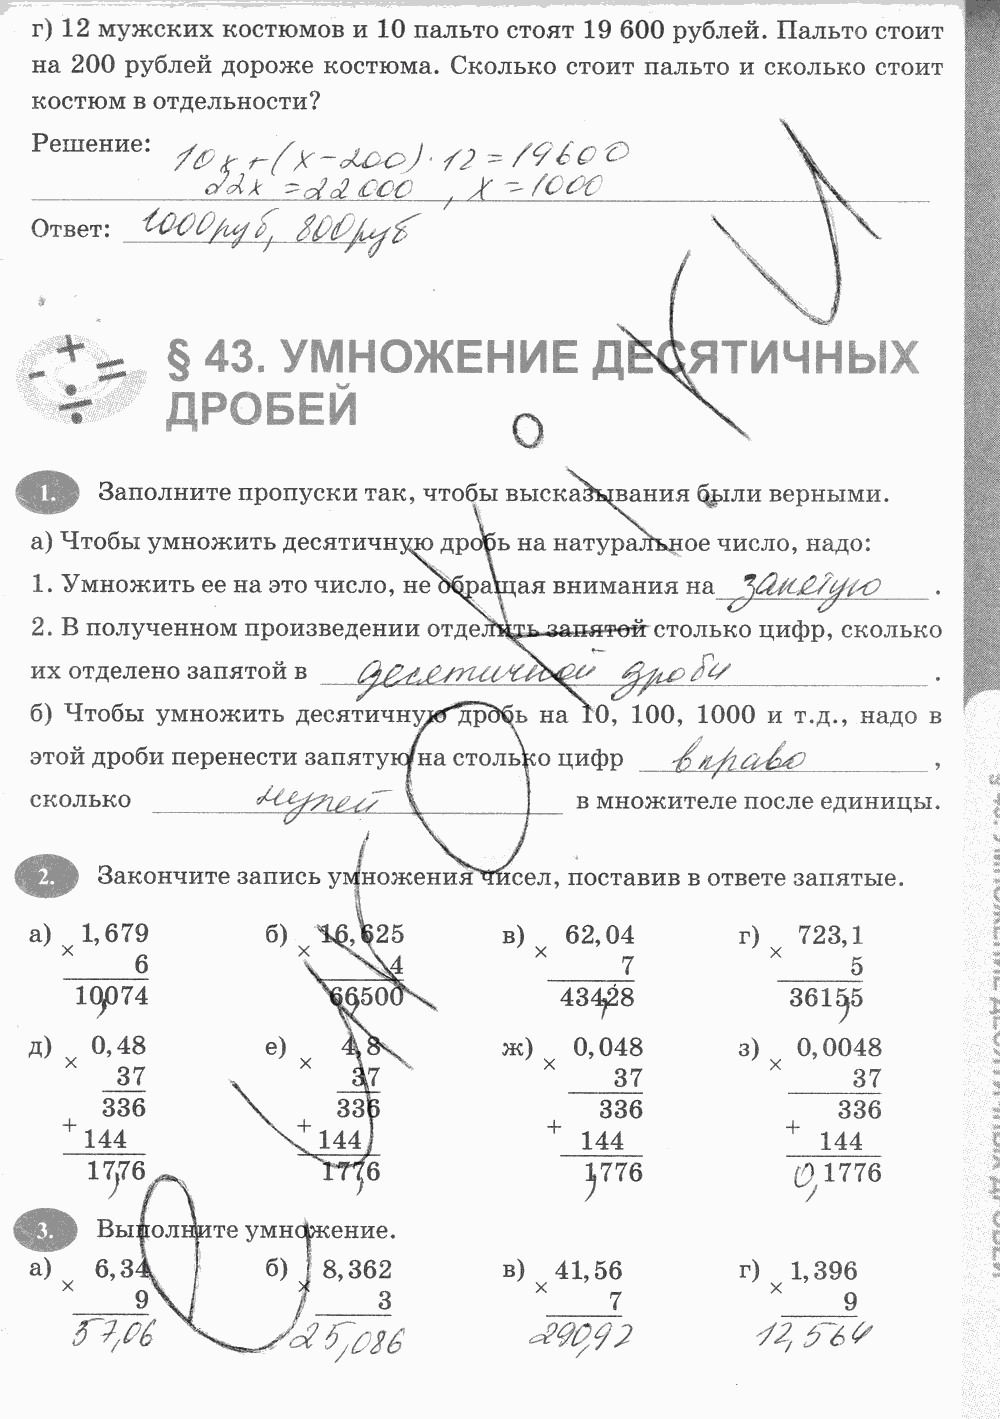 г) 12 мужских костюмов и 10 пальто стоят 19 600 рублей. Пальто стоит
на 200 рублей дороже костюма. Сколько стоит пальто и сколько стоит
костюм в отдельности?
Решение: 10x+(x-200)·12=19600
22x = 22000, x=1000
Ответ: 1000руб, 800руб
§ 43. УМНОЖЕНИЕ ДЕСЯТИЧНЫХ
ДРОБЕЙ
1. Заполните пропуски так, чтобы высказывания были верными.
а) Чтобы умножить десятичную дробь на натуральное число, надо:
1. Умножить ее на это число, не обращая внимания на запятую .
2. В полученном произведении отделить запятой столько цифр, сколько
их отделено запятой в десятичной дроби .
б) Чтобы умножить десятичную дробь на 10, 100, 1000 и т.д., надо в
этой дроби перенести запятую на столько цифр вправо ,
сколько нулей в множителе после единицы.
2. Закончите запись умножения чисел, поставив в ответе запятые.
а) × 1,679 б) × 16,625 в) × 62,04 г) × 723,1
6 4 7 5
10,074 66,500 434,28 3615,5
д) × 0,48 е) × 4,8 ж) × 0,048 з) × 0,0048
37 37 37 37
336 336 336 336
+ 144 + 144 + 144 + 144
17,76 177,6 1,776 0,1776
3. Выполните умножение.
а) × 6,34 б) × 8,362 в) × 41,56 г) × 1,396
9 3 7 9
57,06 25,086 290,92 12,564
§ 43. УМНОЖЕНИЕ ДЕСЯТИЧНЫХ ДРОБЕЙ